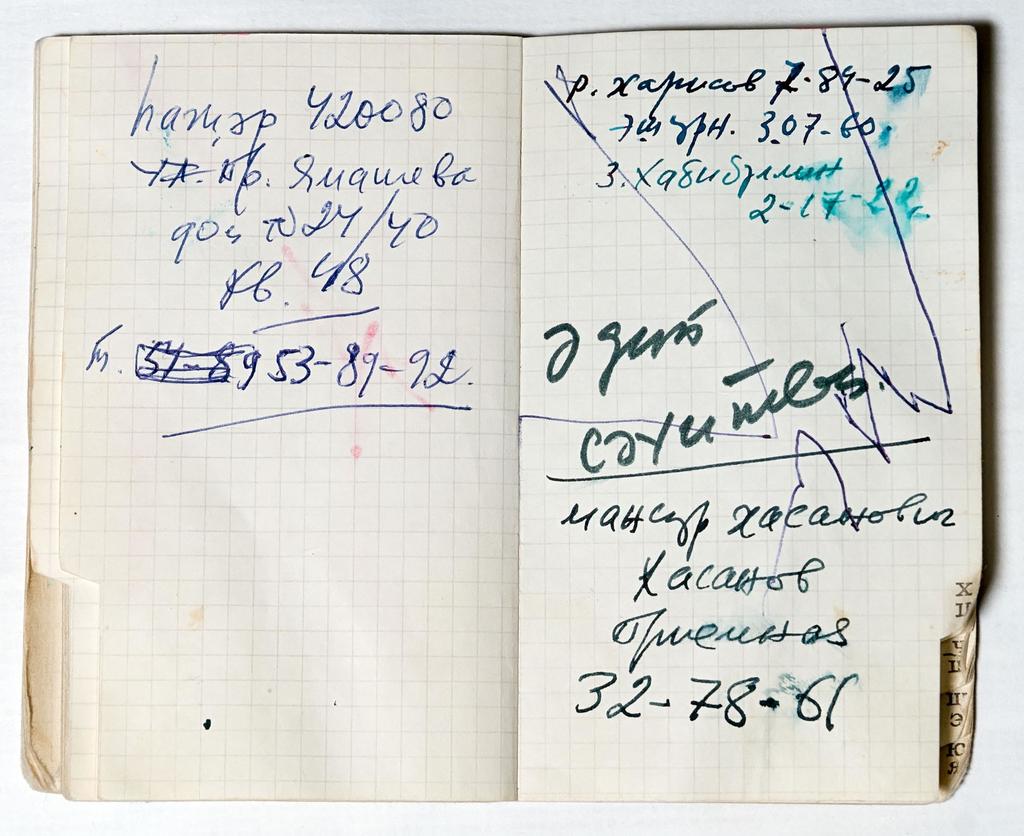 Һаҗәр 420080
ул. пр. Ямашева
дом № 24/40
кв. 48
т. 51-89 53-89-92.
Р. Харисов 7-84-25
307-60.
З. Хабибуллин
2-17-22
Әдип
мансур хасанович
Хасанов
Приемная
32-78-61
Х
Ц
Ч
Ш
Щ
Э
Ю
Я